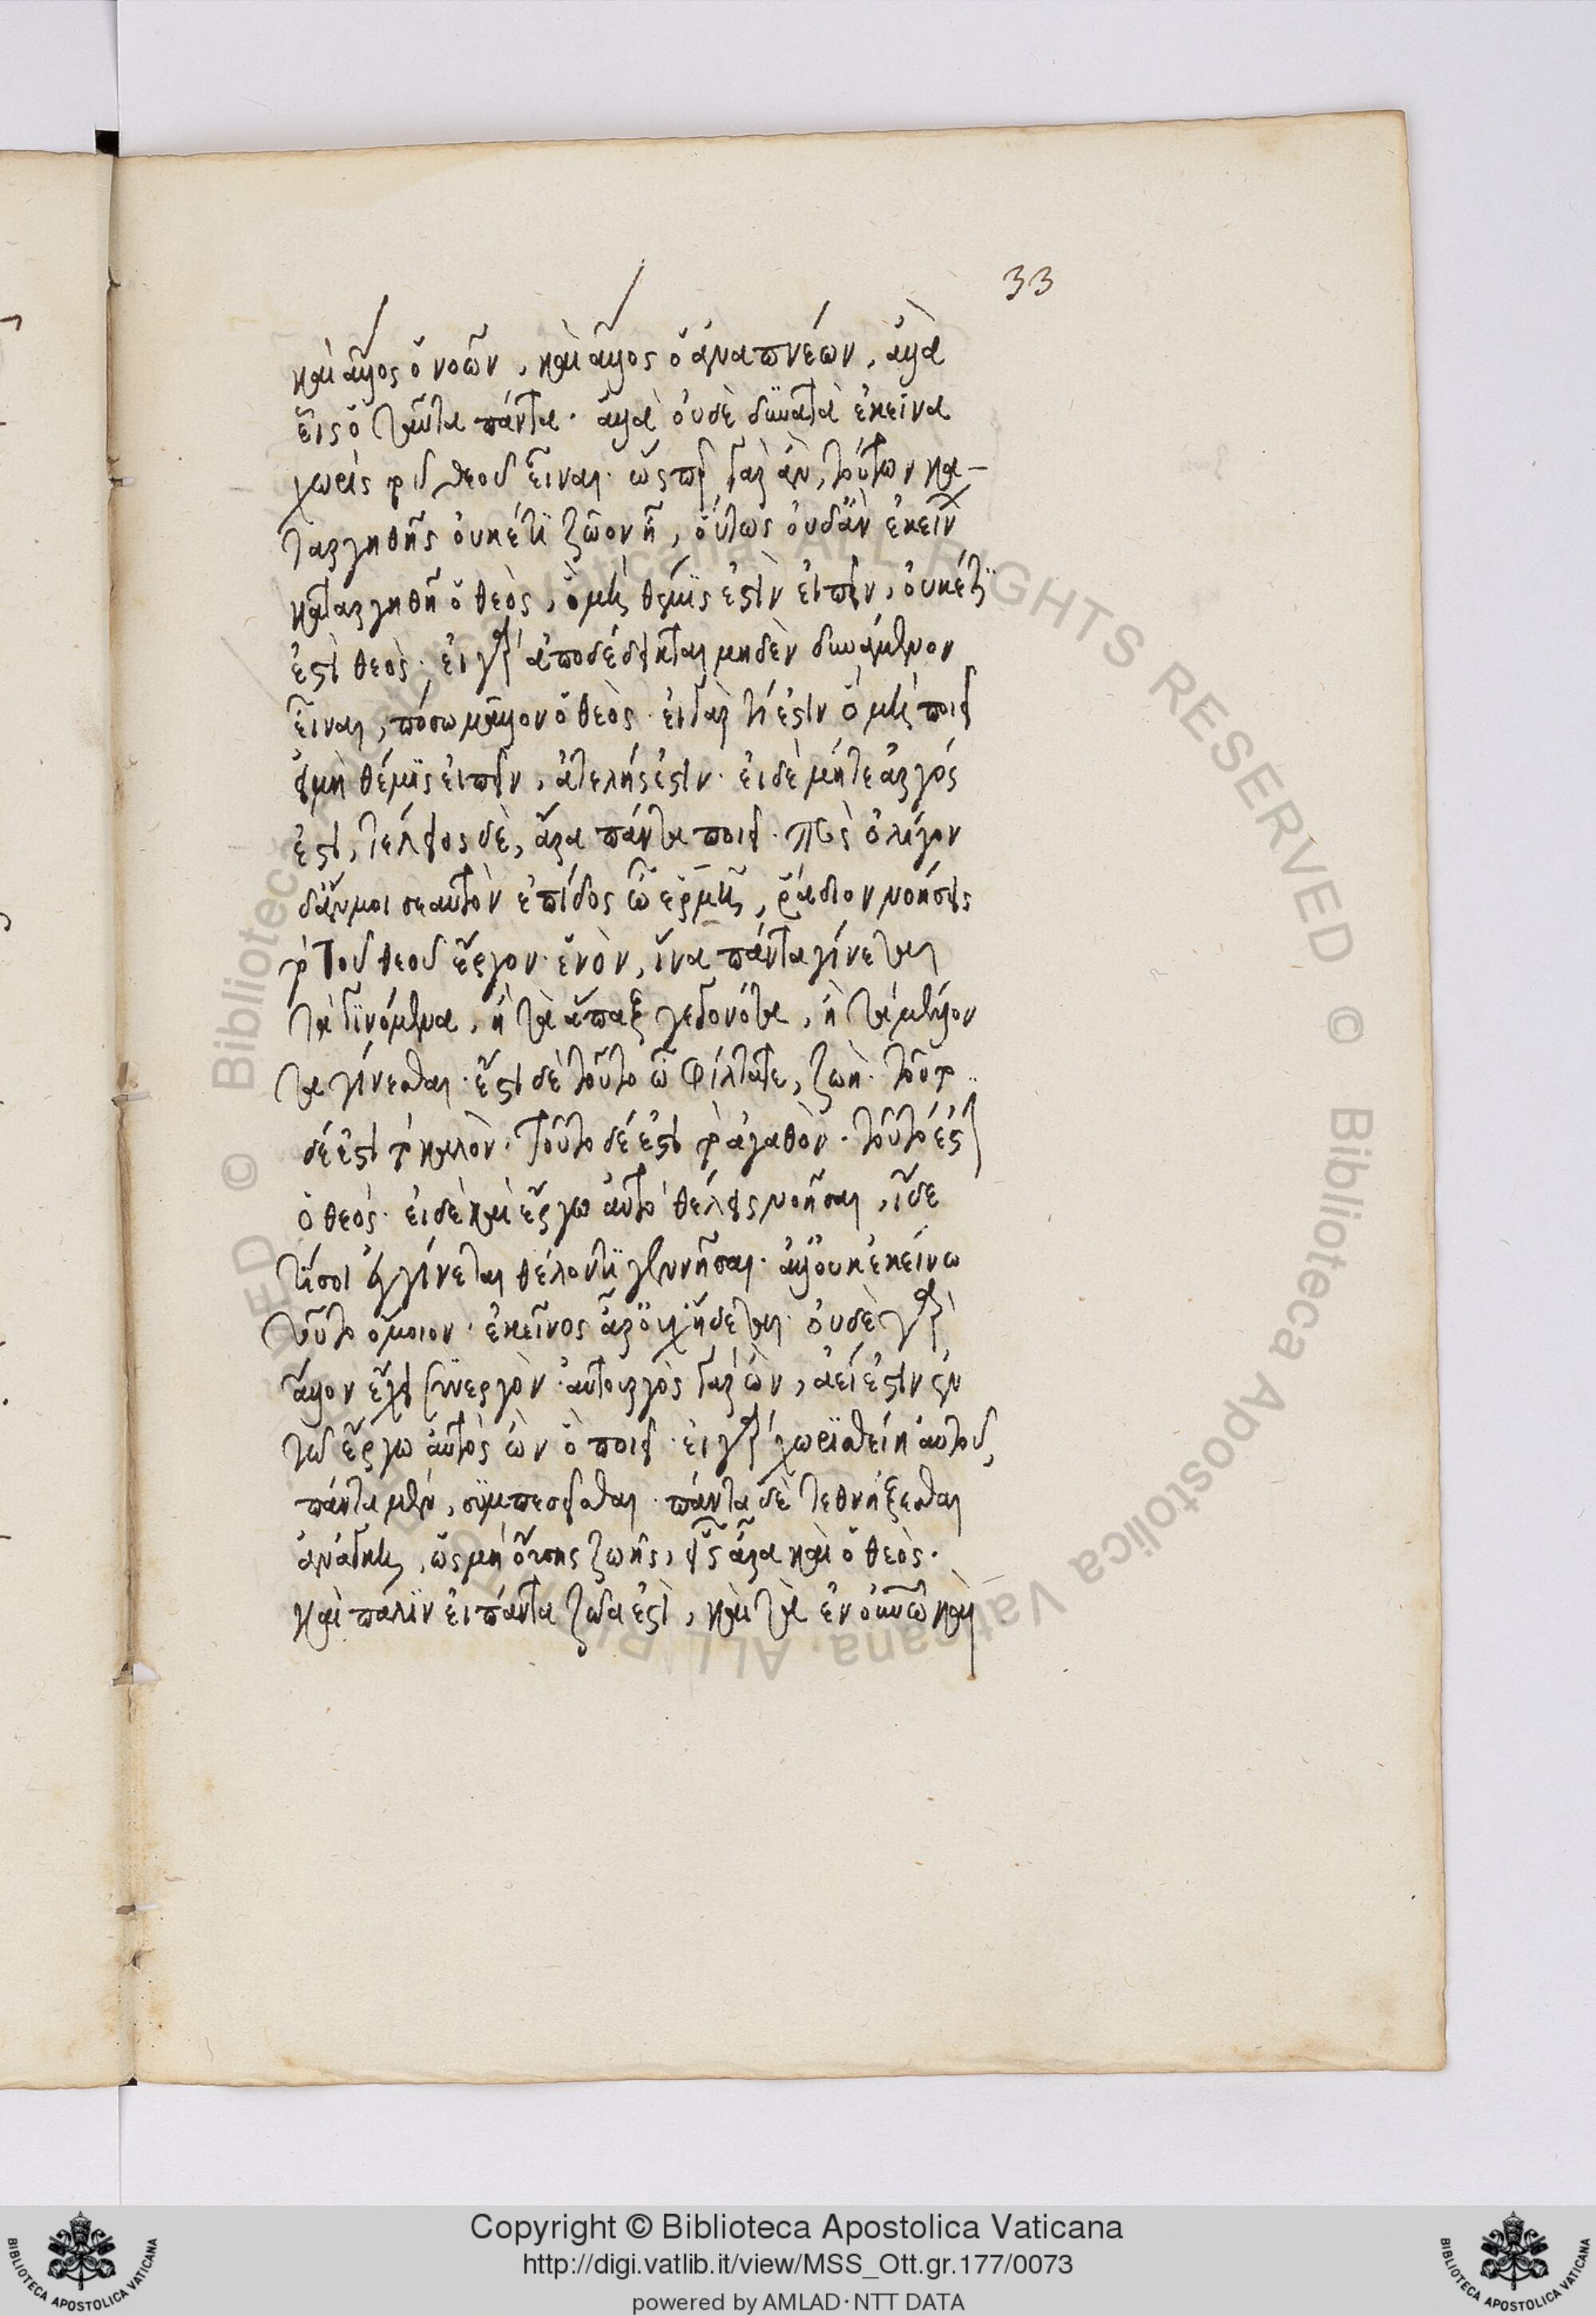 33
καὶ ἄλλος ὁ νοῶν, καὶ ἄλλος ὁ ἀναπνέων, ἀλλὰ
εἷς ὁ ταῦτα πάντα. ἀλλὰ οὐδὲ δυνατὰ ἐκεῖνα
χωρὶς τοῦ θεοῦ εἶναι. ὥσπερ γὰρ ἂν, τούτων κα-
ταργηθῇς οὐκέτι ζῶον ᾖ, οὕτως οὐδ' ἂν ἐκείνων
καταργηθῇ ὁ θεὸς, ὃ μὴ θέμις ἐστὶν εἰπεῖν, οὐκέτι
ἐστὶ θεός. εἰ γὰρ ἀποδέδεικται μηδὲν δυνάμενον
εἶναι, πόσω μᾶλλον ὁ θεός. εἰ γὰρ τί ἐστιν ὃ μὴ ποιεῖ
εἰ μὴ θέμις εἰπεῖν, ἀτελής ἐστιν. εἰ δὲ μήτε ἀργός
ἐστι, τέλειος δὲ, ἄρα πάντα ποιεῖ. πρὸς ὀλίγον
δ' ἄν μοι σεαυτὸν ἐπίδος ὦ ἑρμῆ, ῥάδιον νοήσεις
τὸ τοῦ θεοῦ ἔργον ἓν ὂν, ἵνα πάντα γίνεται
τὰ γινόμενα, ἢ τὰ ἅπαξ γεγονότα, ἢ τὰ μέλλον
τα γίνεσθαι. ἔστι δὲ τοῦτο ὦ φίλτατε, ζωή. τοῦτο
δέ ἐστι τὸ καλόν. τοῦτο δέ ἐστι τὸ ἀγαθόν. τοῦτό ἐστι
ὁ θεός. εἰ δὲ καὶ ἔργω αὐτὸ θέλεις νοῆσαι, ἴδε
τί σοι ἐγγίνεται θέλοντι γεννῆσαι. ἀλλ' οὐκ ἐκείνω
τοῦτο ὅμοιον. ἐκεῖνος ἄρα οὐχ ἥδεται. οὐδὲ γὰρ
ἄλλον ἔχει συνεργόν. αὐτουργὸς γὰρ ὢν, ἀεί ἐστιν ἐν
τῶ ἔργω αὐτὸς ὢν ὃ ποιεῖ. εἰ γὰρ χωρισθείη αὐτοῦ,
πάντα μὲν, συμπεσεῖσθαι. πάντα δὲ τεθνήξεσθαι
ἀνάγκη, ὡς μὴ οὔσης ζωῆς, εἷς ἄρα καὶ ὁ θεός.
καὶ πάλιν εἰ πάντα ζῶα ἐστὶ, καὶ τὰ ἐν οὐρανῶ καὶ
Copyright © Biblioteca Apostolica Vaticana
http://digi.vatlib.it/view/MSS_Ott.gr.177/0073
powered by AMLAD·NTT DATA